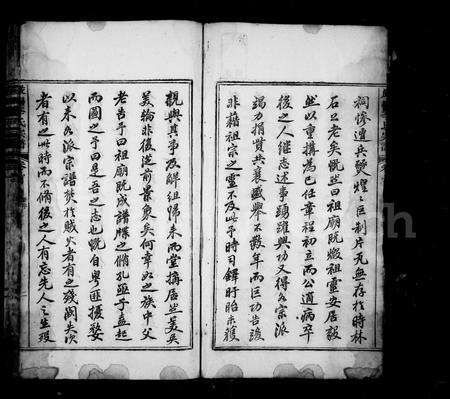 祠慘遭兵燹煌煌巨制片瓦無存於時林
石公老矣慨然曰祖廟既燬祖靈安居毅
然以重搆為己任章程初立而公遒病卒
後之人継志述事踴躍興功又得各宗派
竭力捐貲共襄盛舉不數年而巨功告竣
非藉祖宗之靈不及此予時司鐸盱眙未獲
觀與其事及解組歸來而堂搆居然美矣
美輪非復從前景象矣何幸如之族中父
老告予曰祖廟既成譜牒之修孔亟予蓋起
而圖之予曰是吾之志也慨自粵匪擾婺
以来各派宗譜焚於賊火者有之殘闕失次
者有之此時而不脩後之人有忘先人之生歿